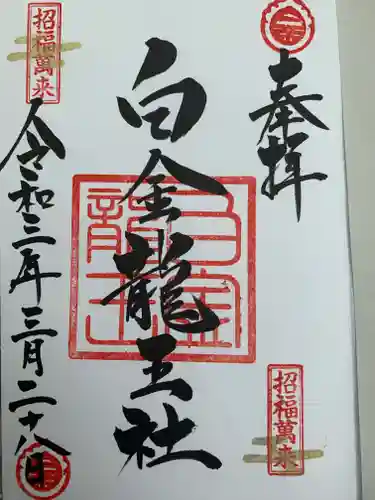 奉拝
白金龍王社
令和三年三月二十八日
招福萬来
招福萬来
白金龍王